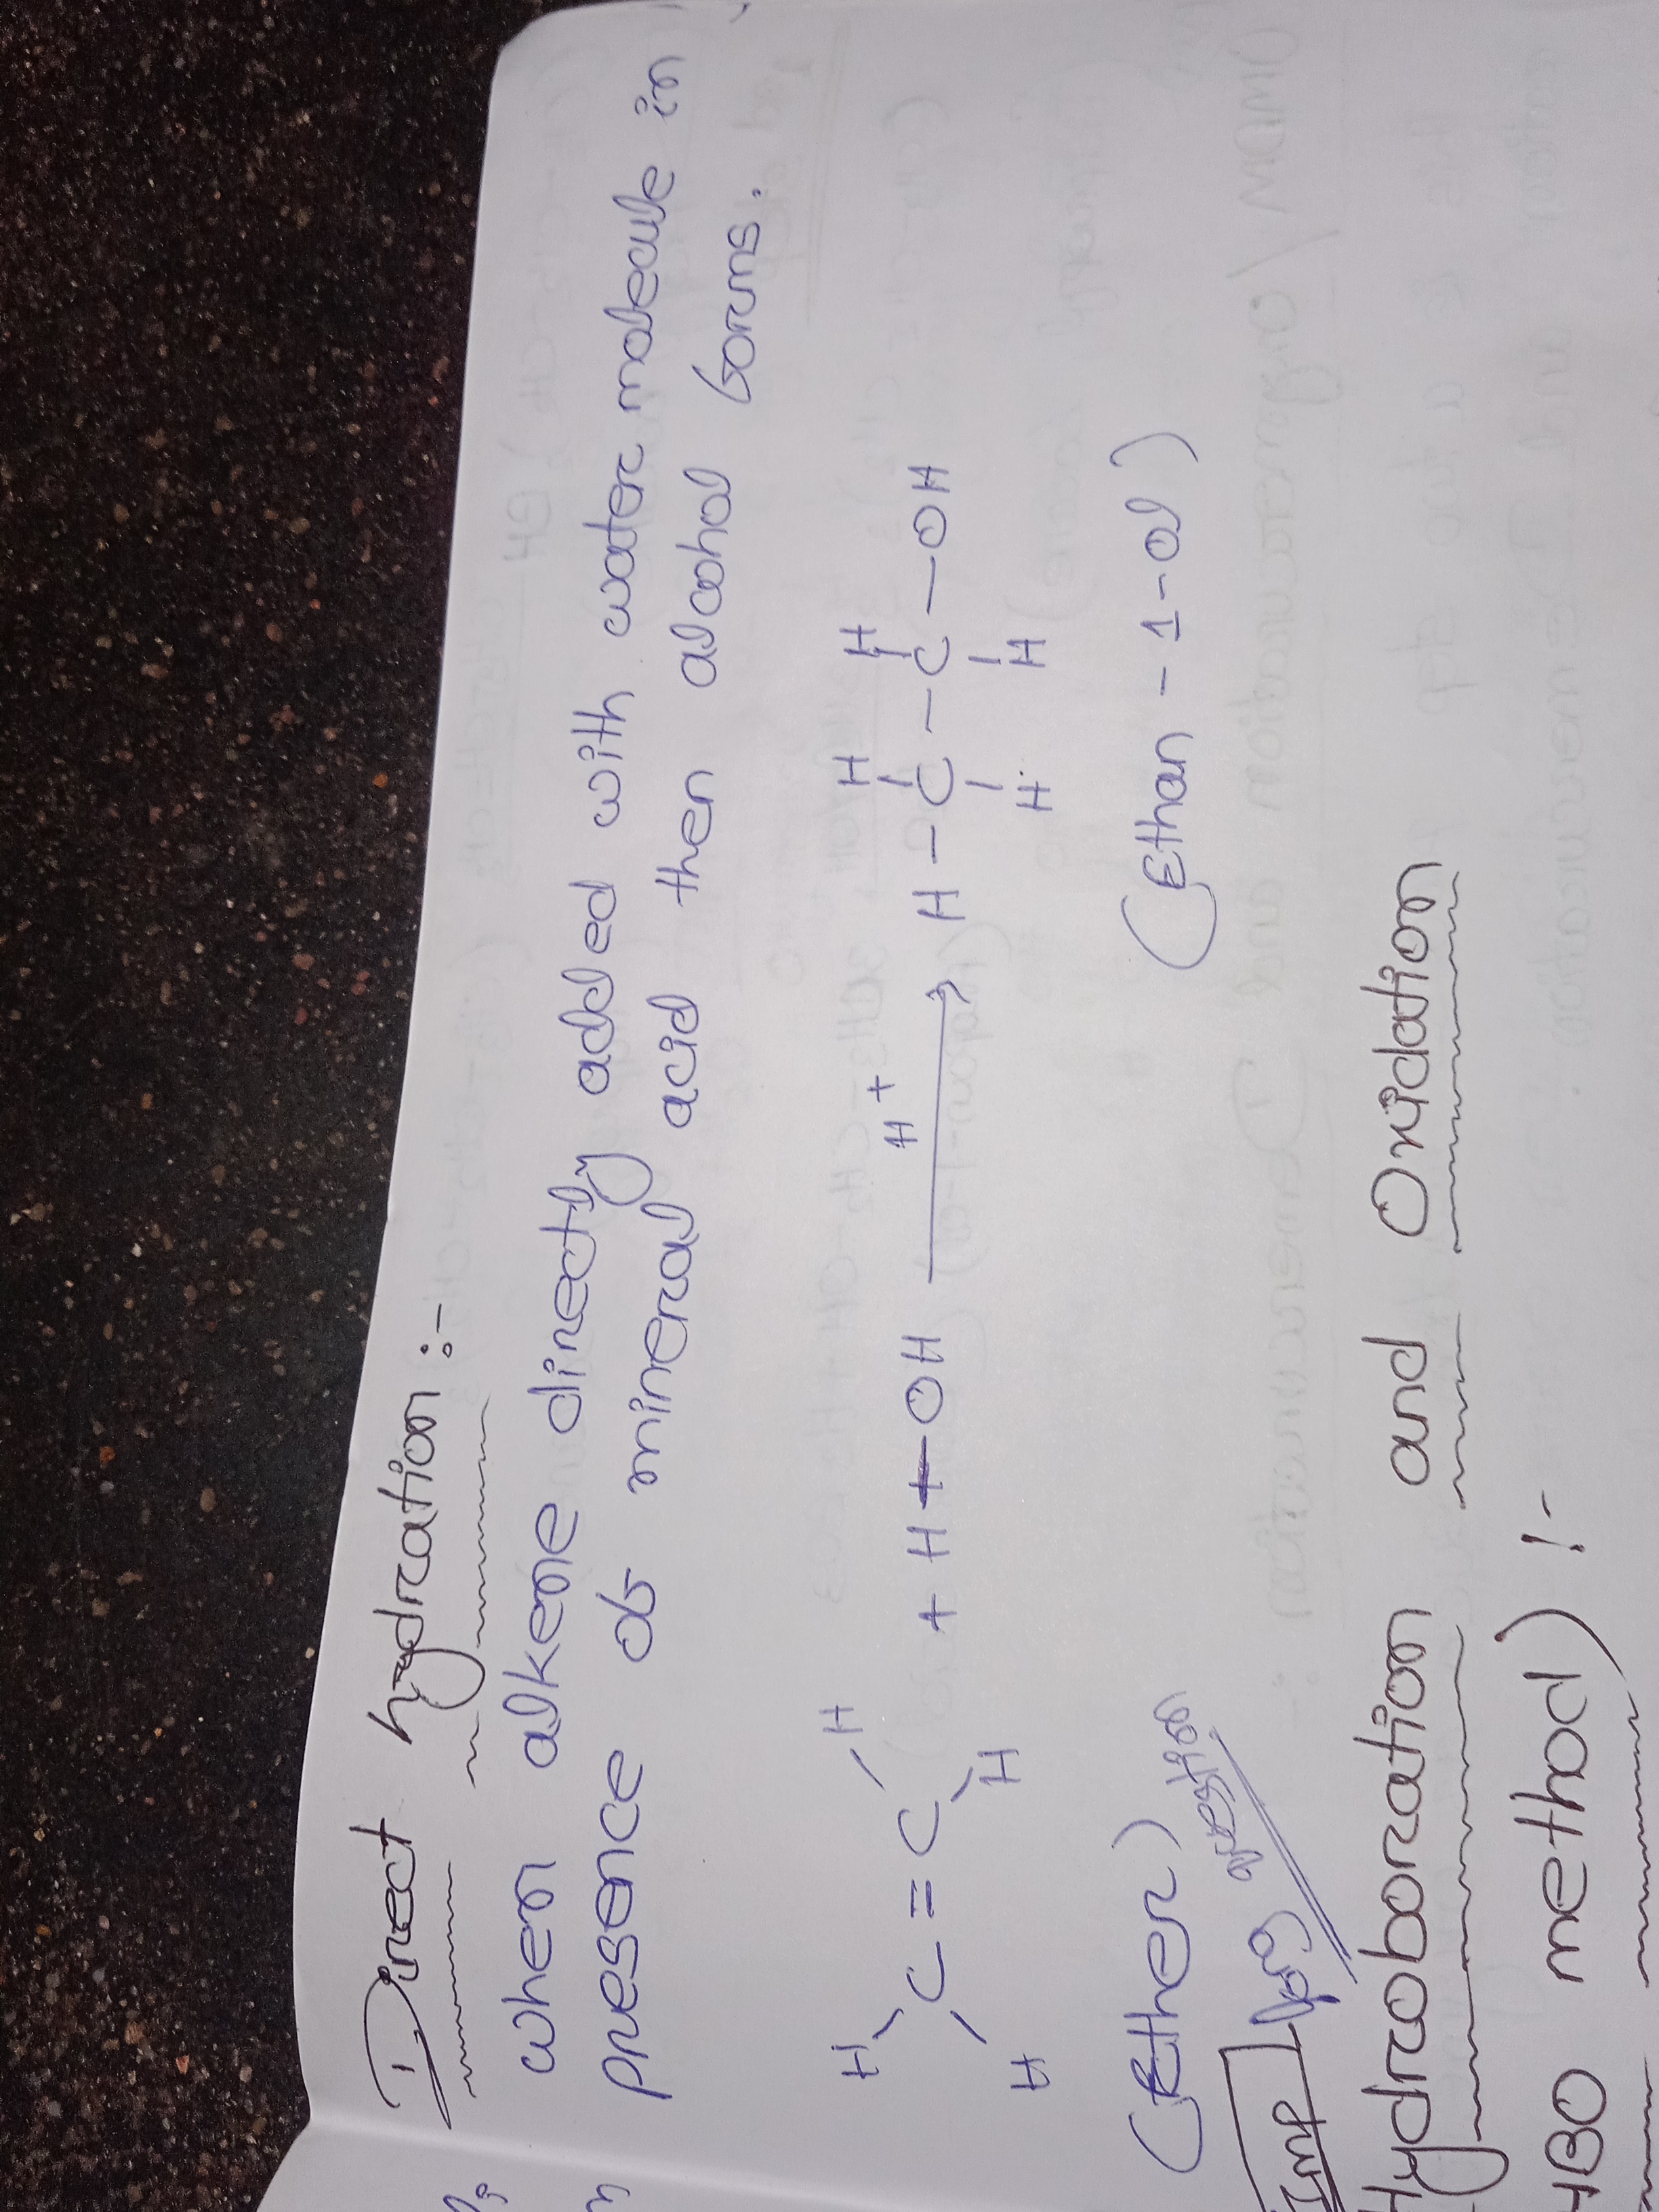 Direct hydration :-
when alkene directly added with water molecule in
presence of mineral acid then alcohol forms.
H H H H
C = C + H + OH H+ H - C - C - OH
H H H H
(Ether) (Ethan - 1 - ol)
Imp long question
Hydroboration and Oxidation
HBO method) :-